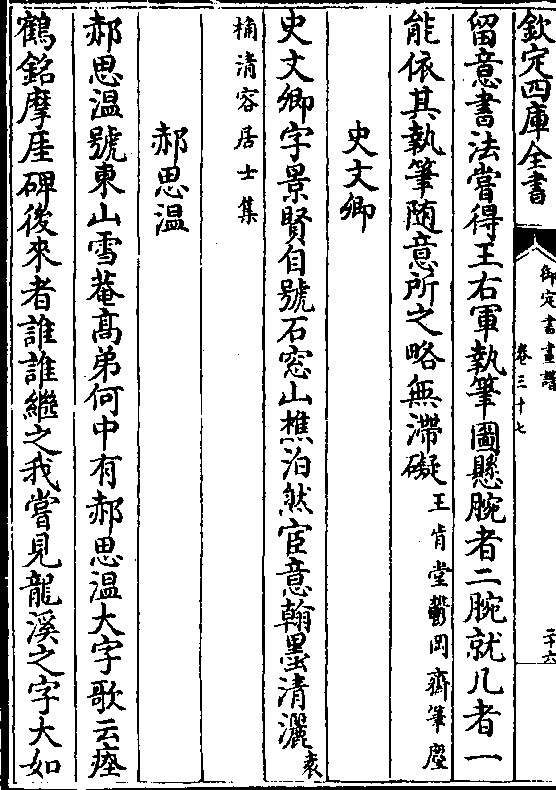 欽定四庫全書
御定書畫譜
卷三十七
二十六
留意書法嘗得王右軍執筆圖懸腕者二腕就几者一
能依其執筆随意所之略無滯礙王肯堂鬱岡齋筆麈
史文卿
史文卿字景賢自號石窓山樵泊然宦意翰墨清灑袁
桷清容居士集
郝思温
郝思温號東山雪菴髙弟何中有郝思温大字歌云瘞
鶴銘摩厓碑後來者誰誰繼之我嘗見龍溪之字大如